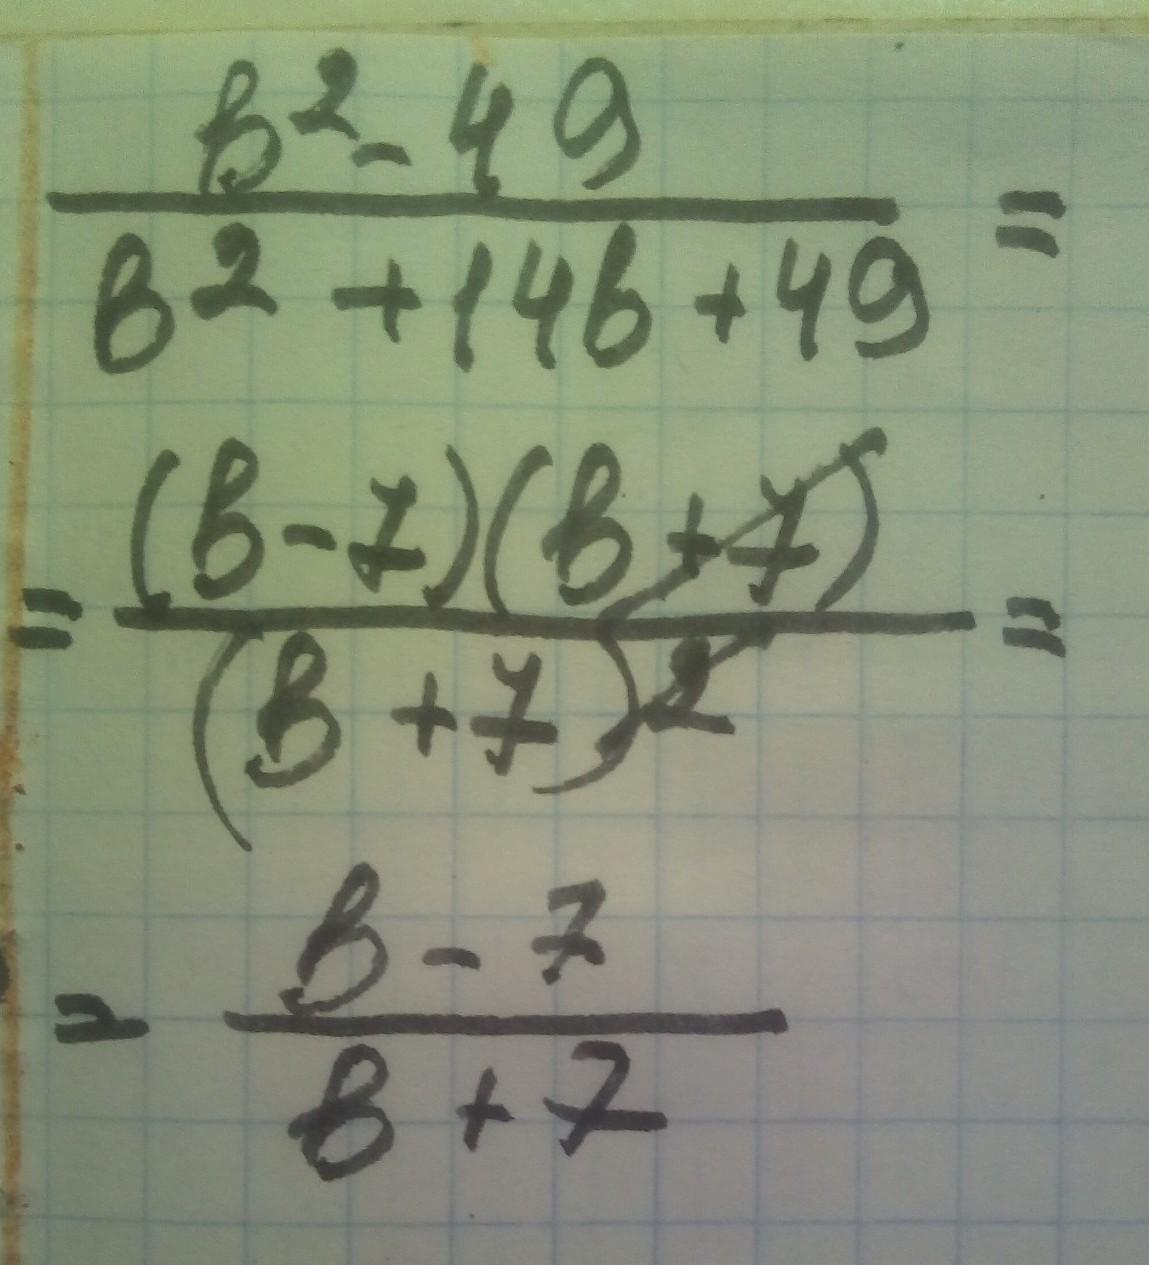 b² - 49
b² + 14b + 49 =
= (b - 7)(b + 7)
(b + 7)² =
= b - 7
b + 7